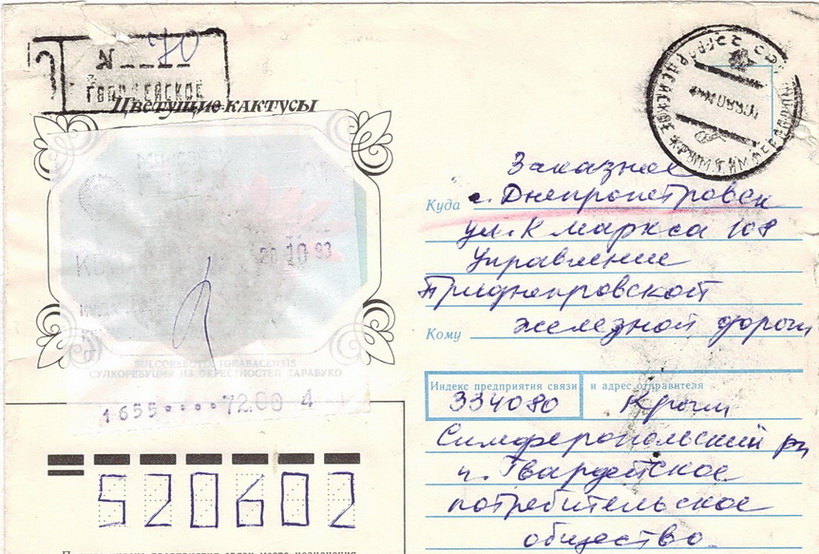 N 70
ГВАРДЕЙСКОЕ
Цветущие кактусы
Заказное
Куда г. Днепропетровск
ул. К Маркса 108
Управление
Приднепровской
Кому железной дороги
20.10 93
SULCOREBUTIA TARABACENSIS
СУЛКОРЕБУЦИЯ ИЗ ОКРЕСТНОСТЕЙ ТАРАБУКО
1655 72.00 4
Индекс предприятия связи и адрес отправителя
334080 Крым
Симферопольский рн
п. Гвардейское
потребительское
общество
520602